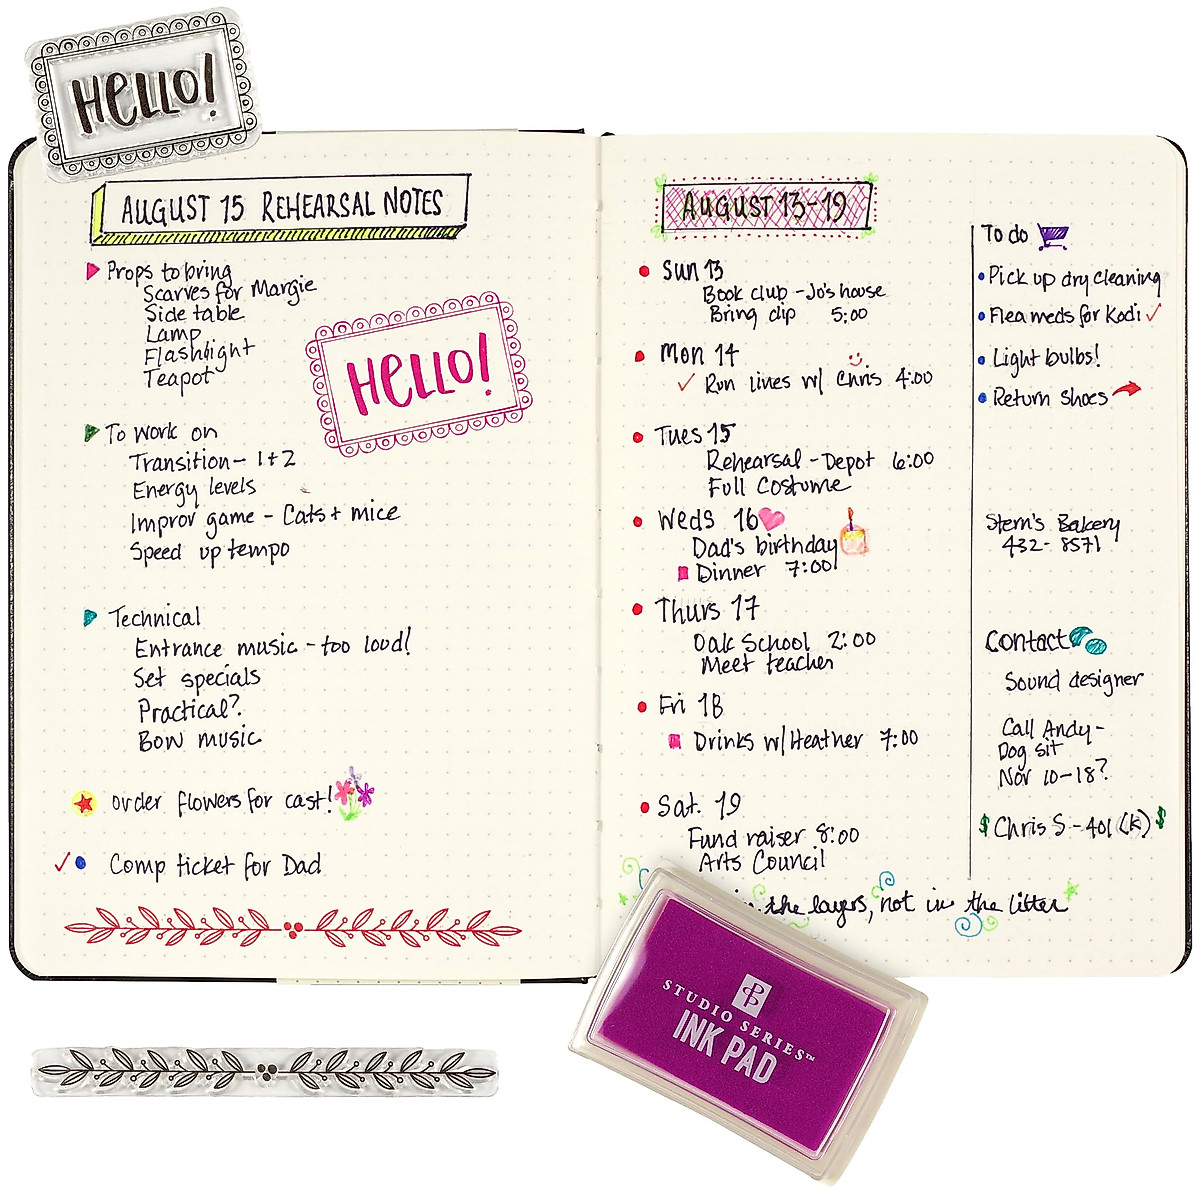 HELLO!
AUGUST 15 REHEARSAL NOTES
Props to bring
Scarves for Margie
Side table
Lamp
Flashlight
Teapot
HELLO!
To work on
Transition - 1+2
Energy levels
Improv game - Cats + mice
Speed up tempo
Technical
Entrance music - too loud!
Set specials
Practical?
Bow music
order flowers for cast!
Comp ticket for Dad
AUGUST 13-19
Sun 13
Book club - Jo's house
Bring dip 5:00
Mon 14
Run lines w/ Chris 4:00
Tues 15
Rehearsal - Depot 6:00
Full Costume
Weds 16
Dad's birthday
Dinner 7:00!
Thurs 17
Oak School 2:00
Meet teacher
Fri 18
Drinks w/ Heather 7:00
Sat. 19
Fund raiser 8:00
Arts Council
in the layers, not in the litter
To do
Pick up dry cleaning
Flea meds for Kodi
Light bulbs!
Return Shoes
Stern's Bakery
432-8571
Contact
Sound designer
Call Andy -
Dog sit
Nov 10-18?
$ Chris S - 401 (K) $
STUDIO SERIES™
INK PAD